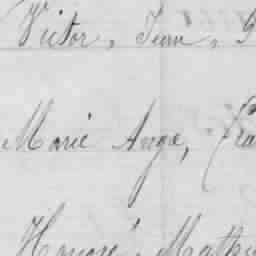 Victor, Jean, 
Marie Ange, 
Honoré, Mathu